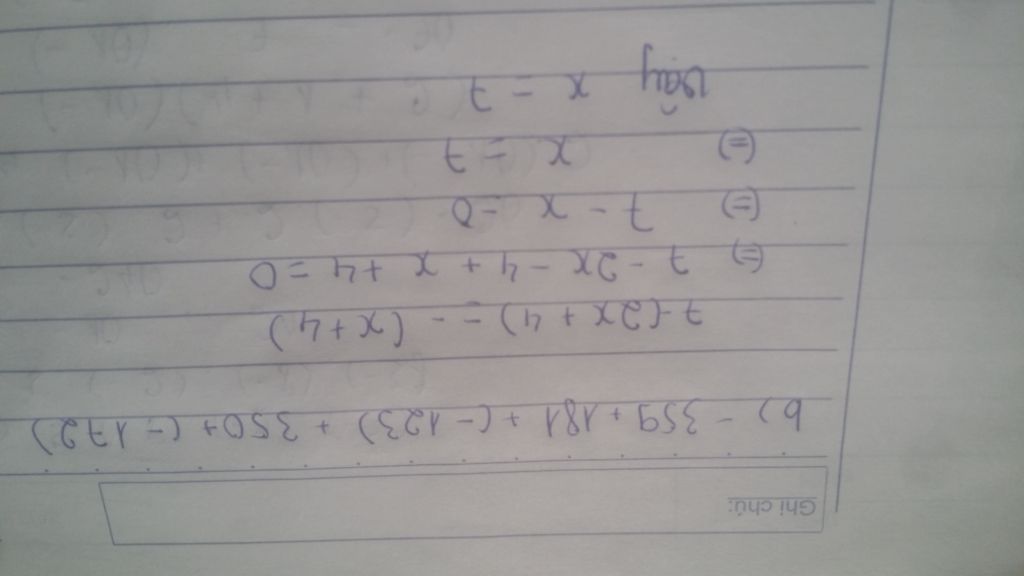 Ghi chú:
b) - 359 + 181 + (- 123) + 350 + (- 172)
7 - (2x + 4) = - (x + 4)
(=) 7 - 2x - 4 + x + 4 = 0
(=) 7 - x = 0
(=) x = 7
Vậy x = 7